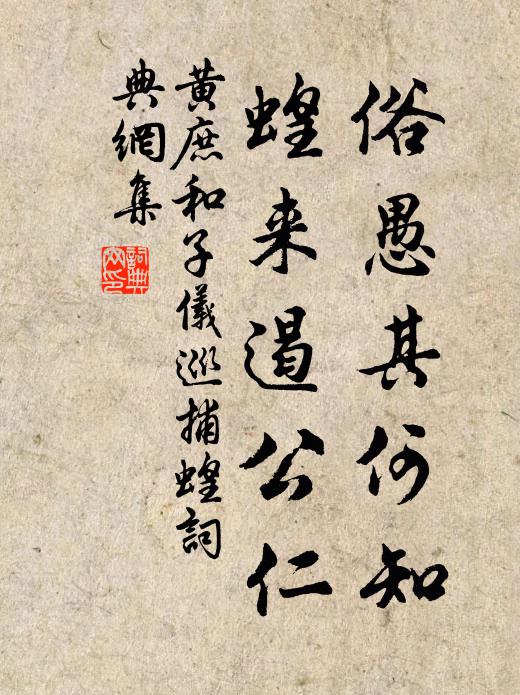 俗愚其何知
蝗来遏公仁
黄庶和子儀巡捕蝗詞
典網集
詞典